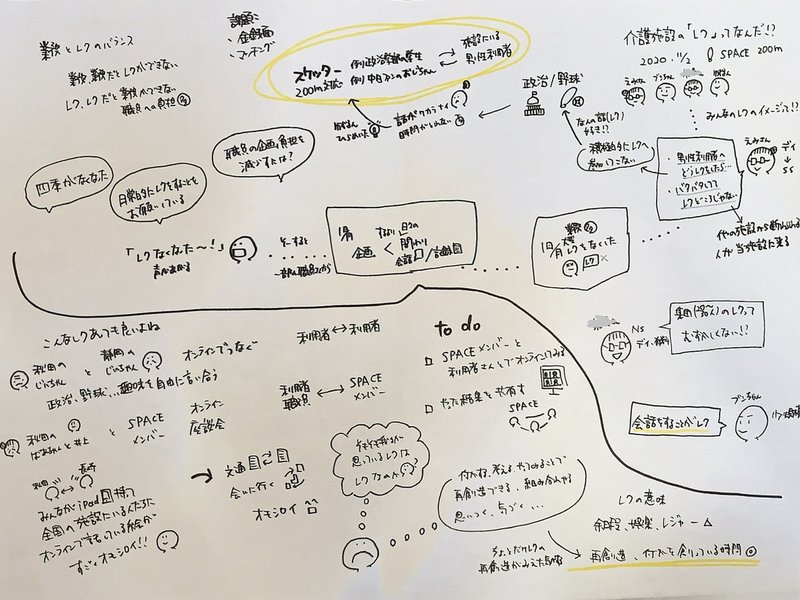 介護施設の「レク」ってなんだ!?
2020.11/2 SPACE 200m
えみさん ブンちゃん
みんなのレクのイメージって!?
えみさん
デイ
↓
SS
・男性利用者へ
どうレクをしたら…
・バタバタしてて
レクどころじゃない
他の施設から断られる
人が当施設に来る
積極的にレクへ
参加してこない
なんの話(レク)
好き!?
政治/野球
話がワカラナイ
時間がとれない
ひらめいた
課題は
・企画面
・マッチング
スケッター
200m対応
例)政治学部の学生
例)中日ファンのおじちゃん
施設にいる
男性利用者
業務とレクのバランス
業務、業務だとレクができない
レク、レクだと業務ができない
職員への負担
職員の企画負担を
減らすには?
日常的にレクをすることを
お願いしている
四季がなくなった
「レクなくなった〜!」
声があがる
そーすると
一部の職員さんから
1月
企画
<
日々の
関わり
会話
/計画
業務
1月
大変
レクをなくした
レク ×
NS
デイ
レクって
むずかしくない!?
ブンちゃん
会話をすることがレク
レクの意味
余暇、娯楽、レジャー △
再創造、付加を創っている時間
付加、考える、やってみることで
再創造できる、組み合わせる
思いつく、気づく…
ちょっとだけレクの
再創造がみえた
そもそも我々が
思っているレクは
レクなのか
to do
□ SPACEメンバーと
利用者さんとでオンラインしてみる
□ やった結果を共有す
SPACE
こんなレクあっても良いよね
秋田の
じいちゃん
と
静岡の
じいちゃん
オンラインでつなぐ
政治、野球…趣味を自由に言い合う
利用者 ↔ 利用者
オンライン
座談会
利用者
職員
↔
SPACE
メンバー
秋田の
ばあちゃんと井上
と
SPACE
メンバー
秋田
長崎
みんながiPad持って
全国の施設にいる人たちに
オンラインで
すごくオモシロイ!!
→
文通
会いに行く
オモシロイ